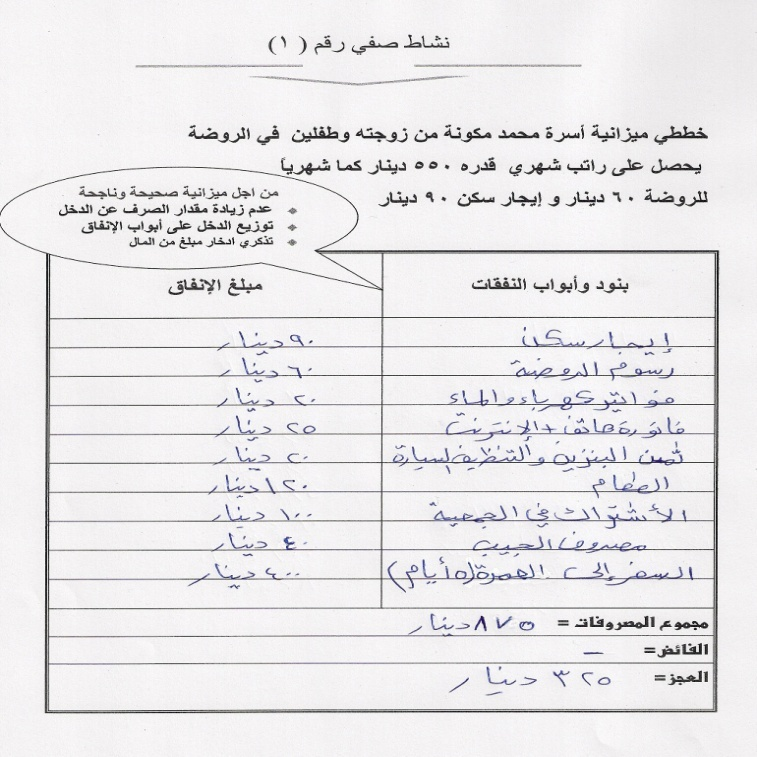 نشاط صفي رقم ( ١ )
خططي ميزانية أسرة محمد مكونة من زوجته وطفلين في الروضة
يحصل على راتب شهري قدره ٥٥٠ دينار كما شهرياً
للروضة ٦٠ دينار و إيجار سكن ٩٠ دينار
من اجل ميزانية صحيحة وناجحة
عدم زيادة مقدار الصرف عن الدخل
توزيع الدخل على أبواب الإنفاق
تذكري ادخار مبلغ من المال
بنود وأبواب النفقات مبلغ الإنفاق
إيجار سكن ٩٠ دينار
رسوم الروضة ٦٠ دينار
فواتير كهرباء والماء ٢٠ دينار
فاتورة هاتف + الإنترنت ٢٥ دينار
ثمن البنزين والتنظيف السيارة ٢٠ دينار
الطعام ١٢٠ دينار
الأشتراك في الجمعية ١٠٠ دينار
مصروف الجيب ٤٠ دينار
السفر إلى العمرة (٥ أيام) ٤٠٠ دينار
مجموع المصروفات = ٨٧٥ دينار
الفائض = –
العجز = ٣٢٥ دينار